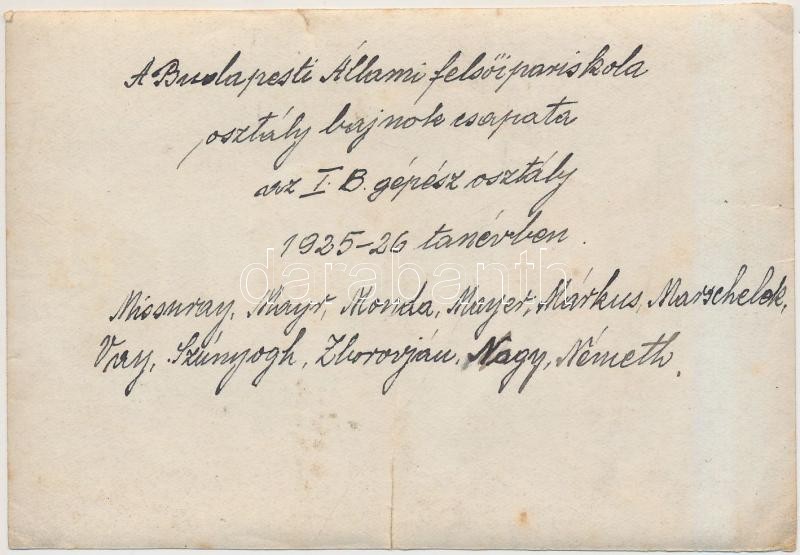 A Budapesti Állami felsőipariskola
osztály bajnok csapata
az I. B. gépész osztály
1925-26 tanévben.
Missuray, Mayr, Monda, Mayer, Márkus, Marschelek,
Vay, Szúnyogh, Zborovján, Nagy, Németh.
darabanth